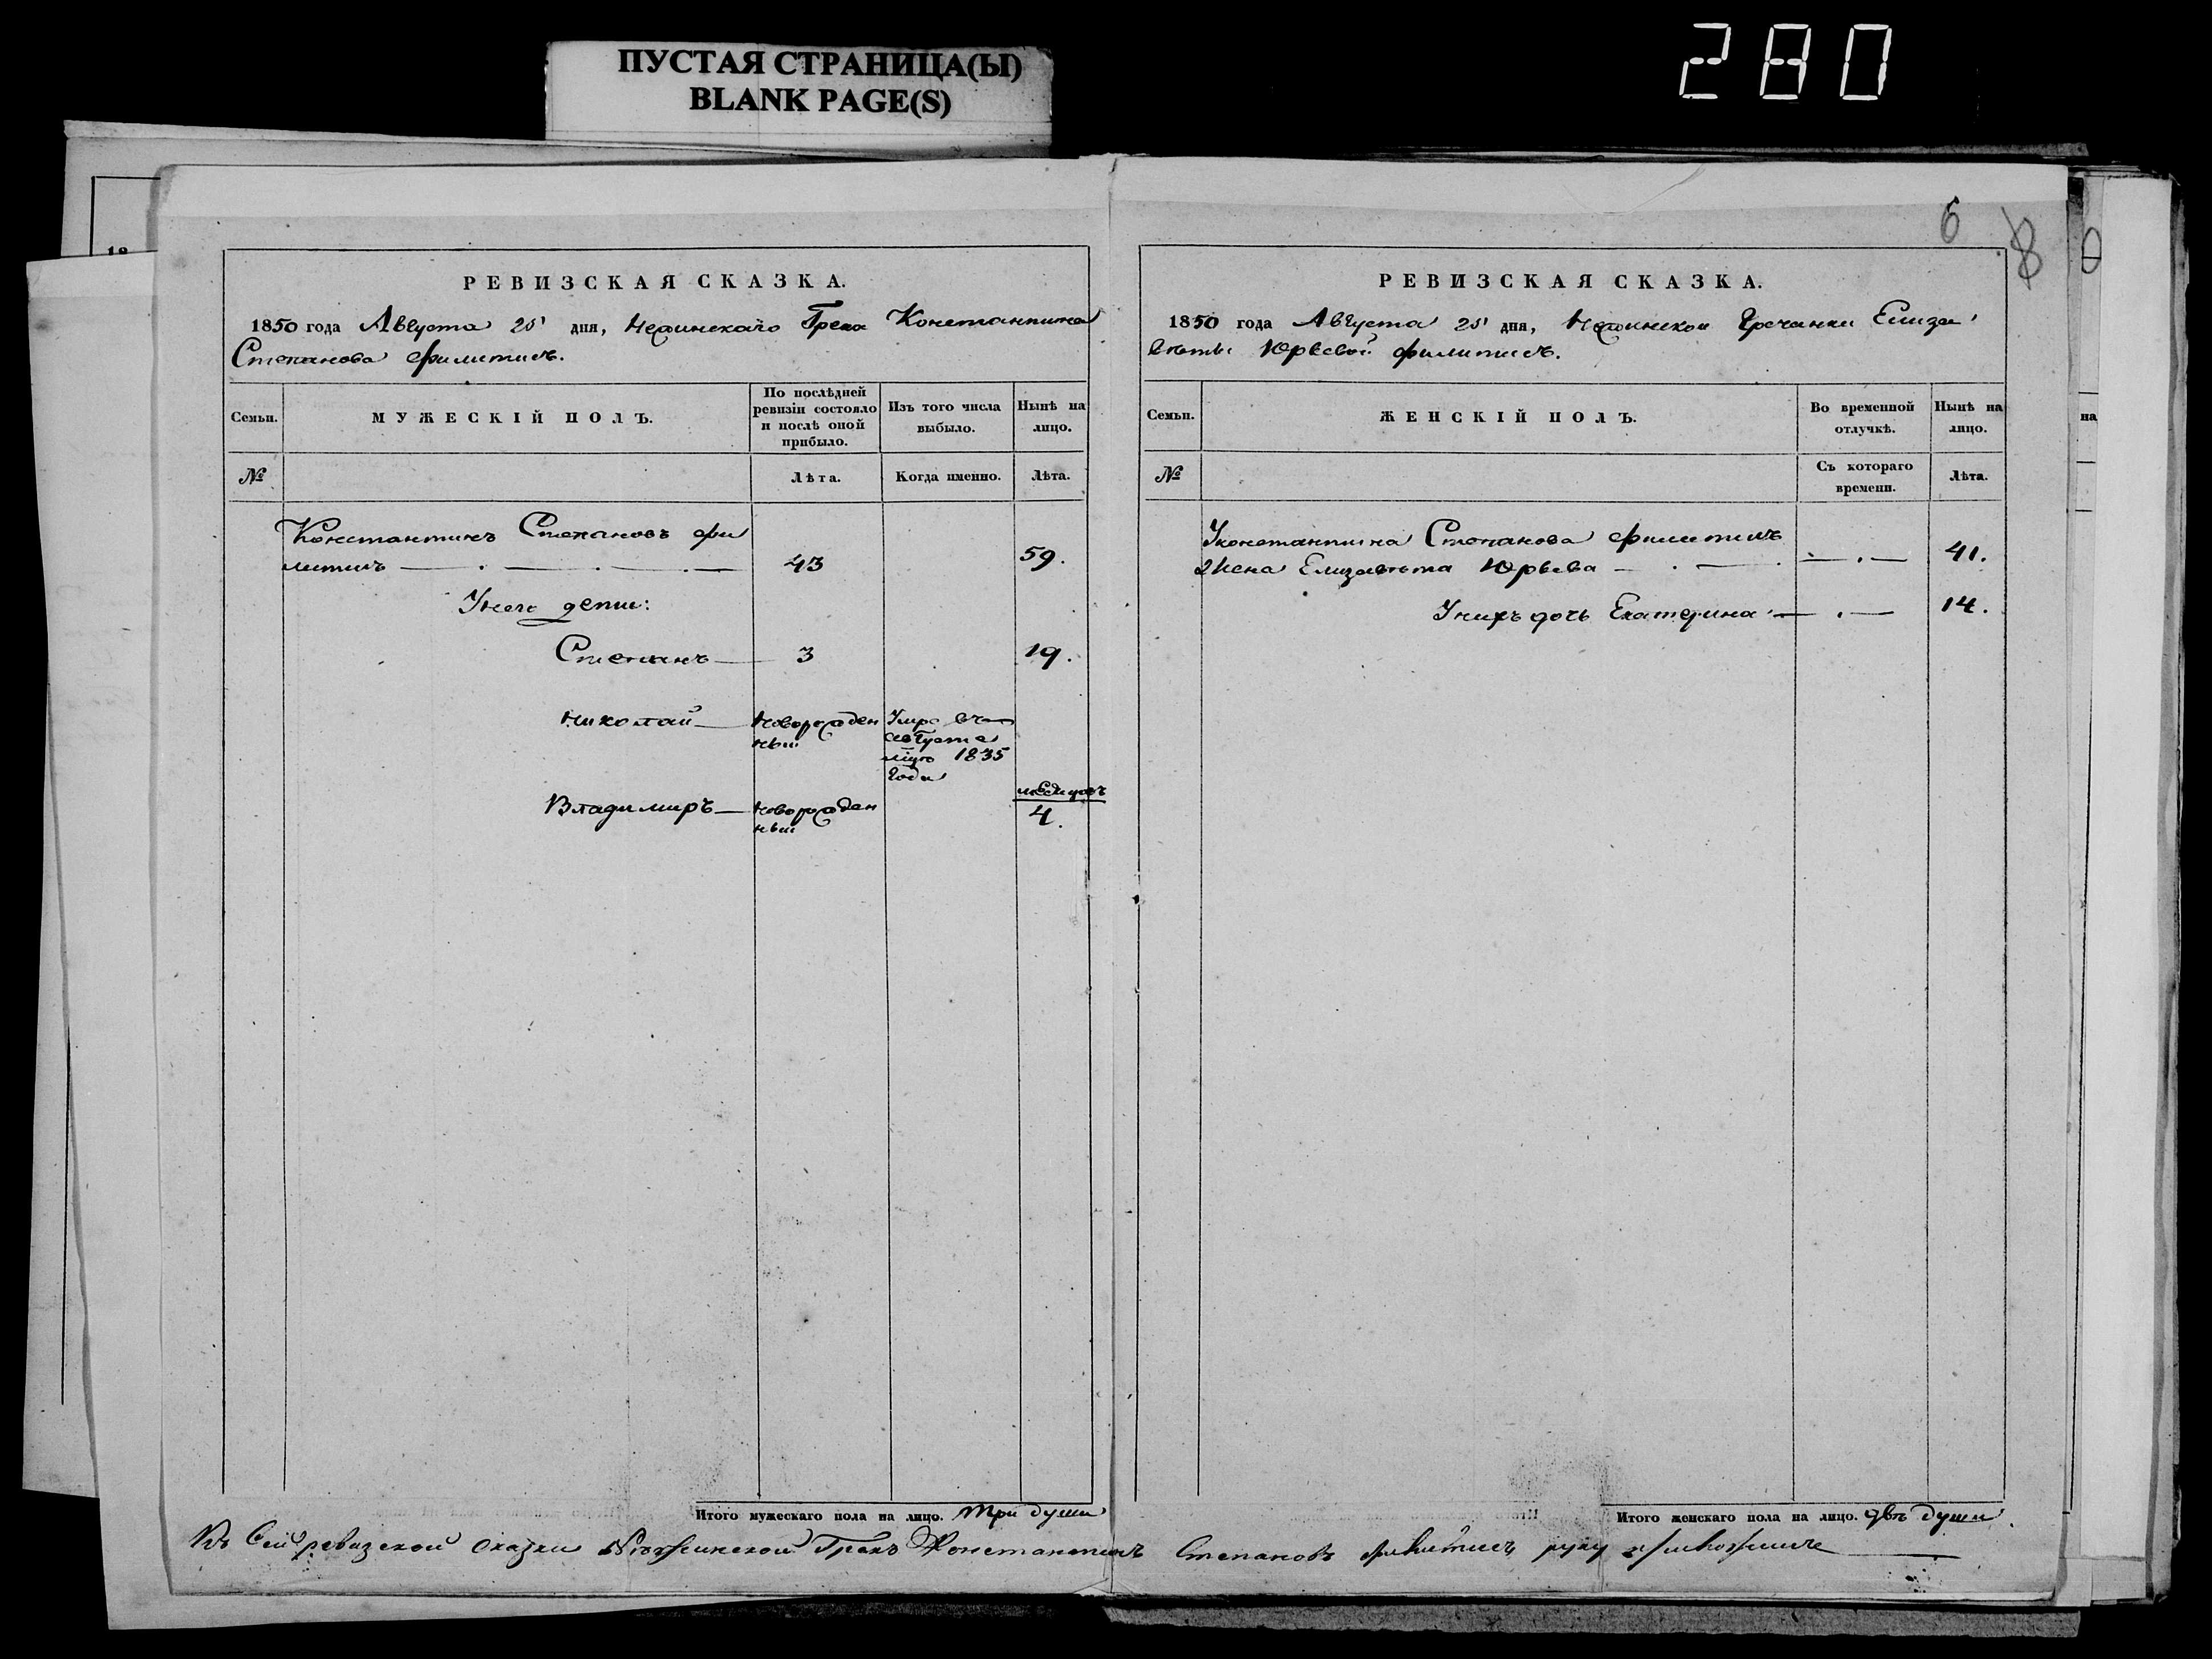 ПУСТАЯ СТРАНИЦА(Ы)
BLANK PAGE(S)
280
РЕВИЗСКАЯ СКАЗКА.
1850 года Августа 25 дня, Нежинскаго Грека Константина
Степанова Филитисъ.
Семьи.
МУЖЕСКІЙ ПОЛЪ.
По послѣдней
ревизіи состояло
и послѣ оной
прибыло.
Изъ того числа
выбыло.
Нынѣ на
лицо.
№
Лѣта.
Когда именно.
Лѣта.
Константинъ Степановъ Фи
литисъ 43 59.
У него дети:
Степанъ 3 19.
Николай Новорожден
ный
Умре въ
августе
м̃цѣ 1835
года
Владимиръ Новорожден
ный
месяцовъ
4.
Итого мужескаго пола на лицо. три души
6
8
РЕВИЗСКАЯ СКАЗКА.
1850 года Августа 25 дня, Нежинской Гречанки Елиза
веты Юрьевой Филитисъ.
Семьи.
ЖЕНСКІЙ ПОЛЪ.
Во временной
отлучкѣ.
Нынѣ на
лицо.
№
Съ котораго
времени.
Лѣта.
У Константина Степанова Филитисъ
Жена Елизавета Юрьева 41.
У нихъ дочь Екатерина 14.
Итого женскаго пола на лицо. двѣ души
Къ Сей ревизской сказки Нѣжинской Грекъ Константинъ Степановъ Филитисъ руку приложилъ